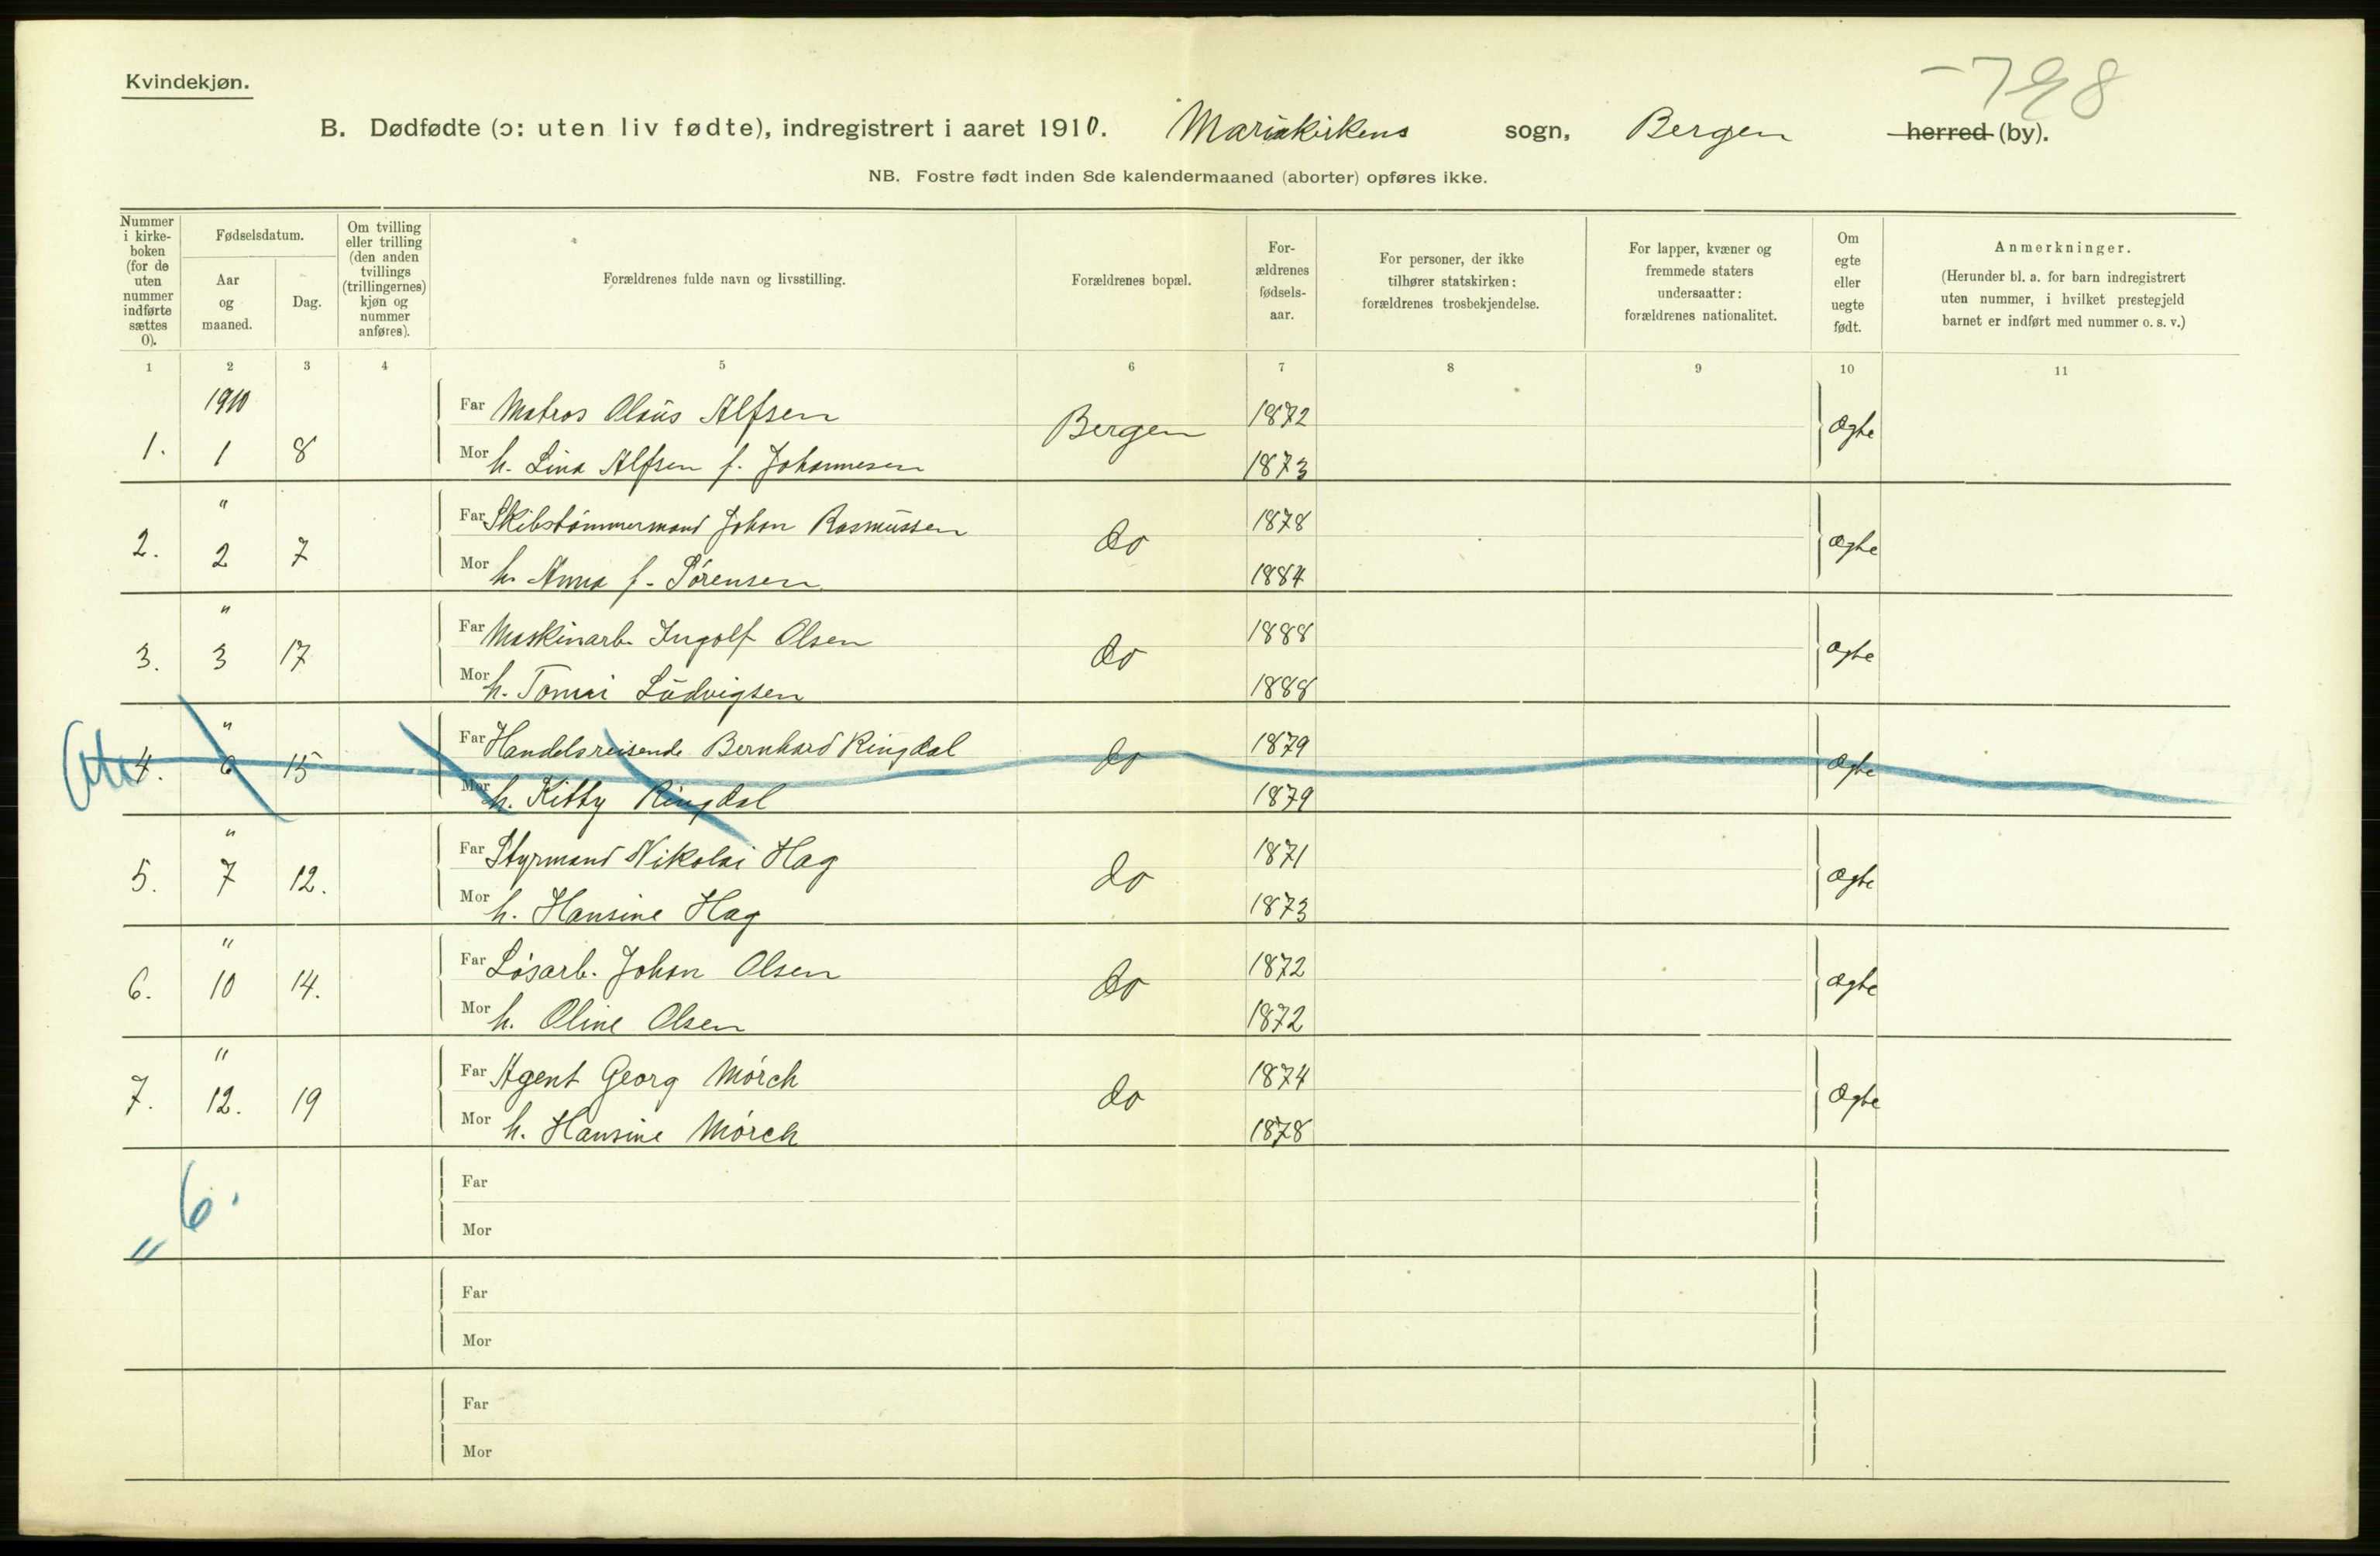 Kvindekjøn.
-798
B. Dødfødte (ɔ: uten liv fødte), indregistrert i aaret 1910. Mariakirkens sogn, Bergen herred (by).
NB. Fostre født inden 8de kalendermaaned (aborter) opføres ikke.
Nummer i kirke-boken (for de uten nummer indførte sættes 0).
Fødselsdatum.
Aar og maaned.
Dag.
Om tvilling eller trilling (den anden tvillings (trillingernes) kjøn og nummer anføres).
Forældrenes fulde navn og livsstilling.
Forældrenes bopæl.
For-ældrenes fødsels-aar.
For personer, der ikke tilhører statskirken: forældrenes trosbekjendelse.
For lapper, kvæner og fremmede staters undersaatter: forældrenes nationalitet.
Om egte eller uegte født.
Anmerkninger.
(Herunder bl. a. for barn indregistrert uten nummer, i hvilket prestegjeld barnet er indført med nummer o. s. v.)
1 2 3 4 5 6 7 8 9 10 11
1910
Far Matros Olaus Alfsen 1872
1. 1 8 Bergen Ægte
Mor h. Lina Alfsen f. Johannesen 1873
"
Far Skibstømmermand Johan Rasmussen 1878
2. 2 7 do Ægte
Mor h. Anna f. Sørensen 1884
"
Far Maskinarb. Ingolf Olsen 1888
3. 3 17 do Ægte
Mor h. Tomai Ludvigsen 1888
"
Far Handelsreisende Bernhard Ringdal 1879
4. 6 15 do Ægte
Mor h. Kitty Ringdal 1879
"
Far Styrmand Nikolai Hag 1871
5. 7 12. do Ægte
Mor h. Hansine Hag 1873
"
Far Løsarb. Johan Olsen 1872
6. 10 14. do Ægte
Mor h. Oline Olsen 1872
"
Far Agent Georg Mørch 1874
7. 12. 19 do Ægte
Mor h. Hansine Mørch 1878
Far
6.
Mor
"
Far
Mor
Far
Mor